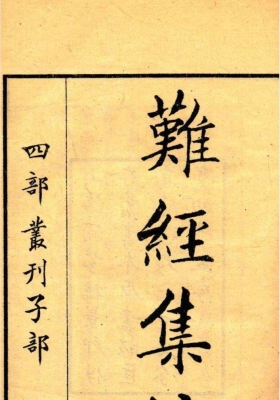 難經集
四部叢刊子部